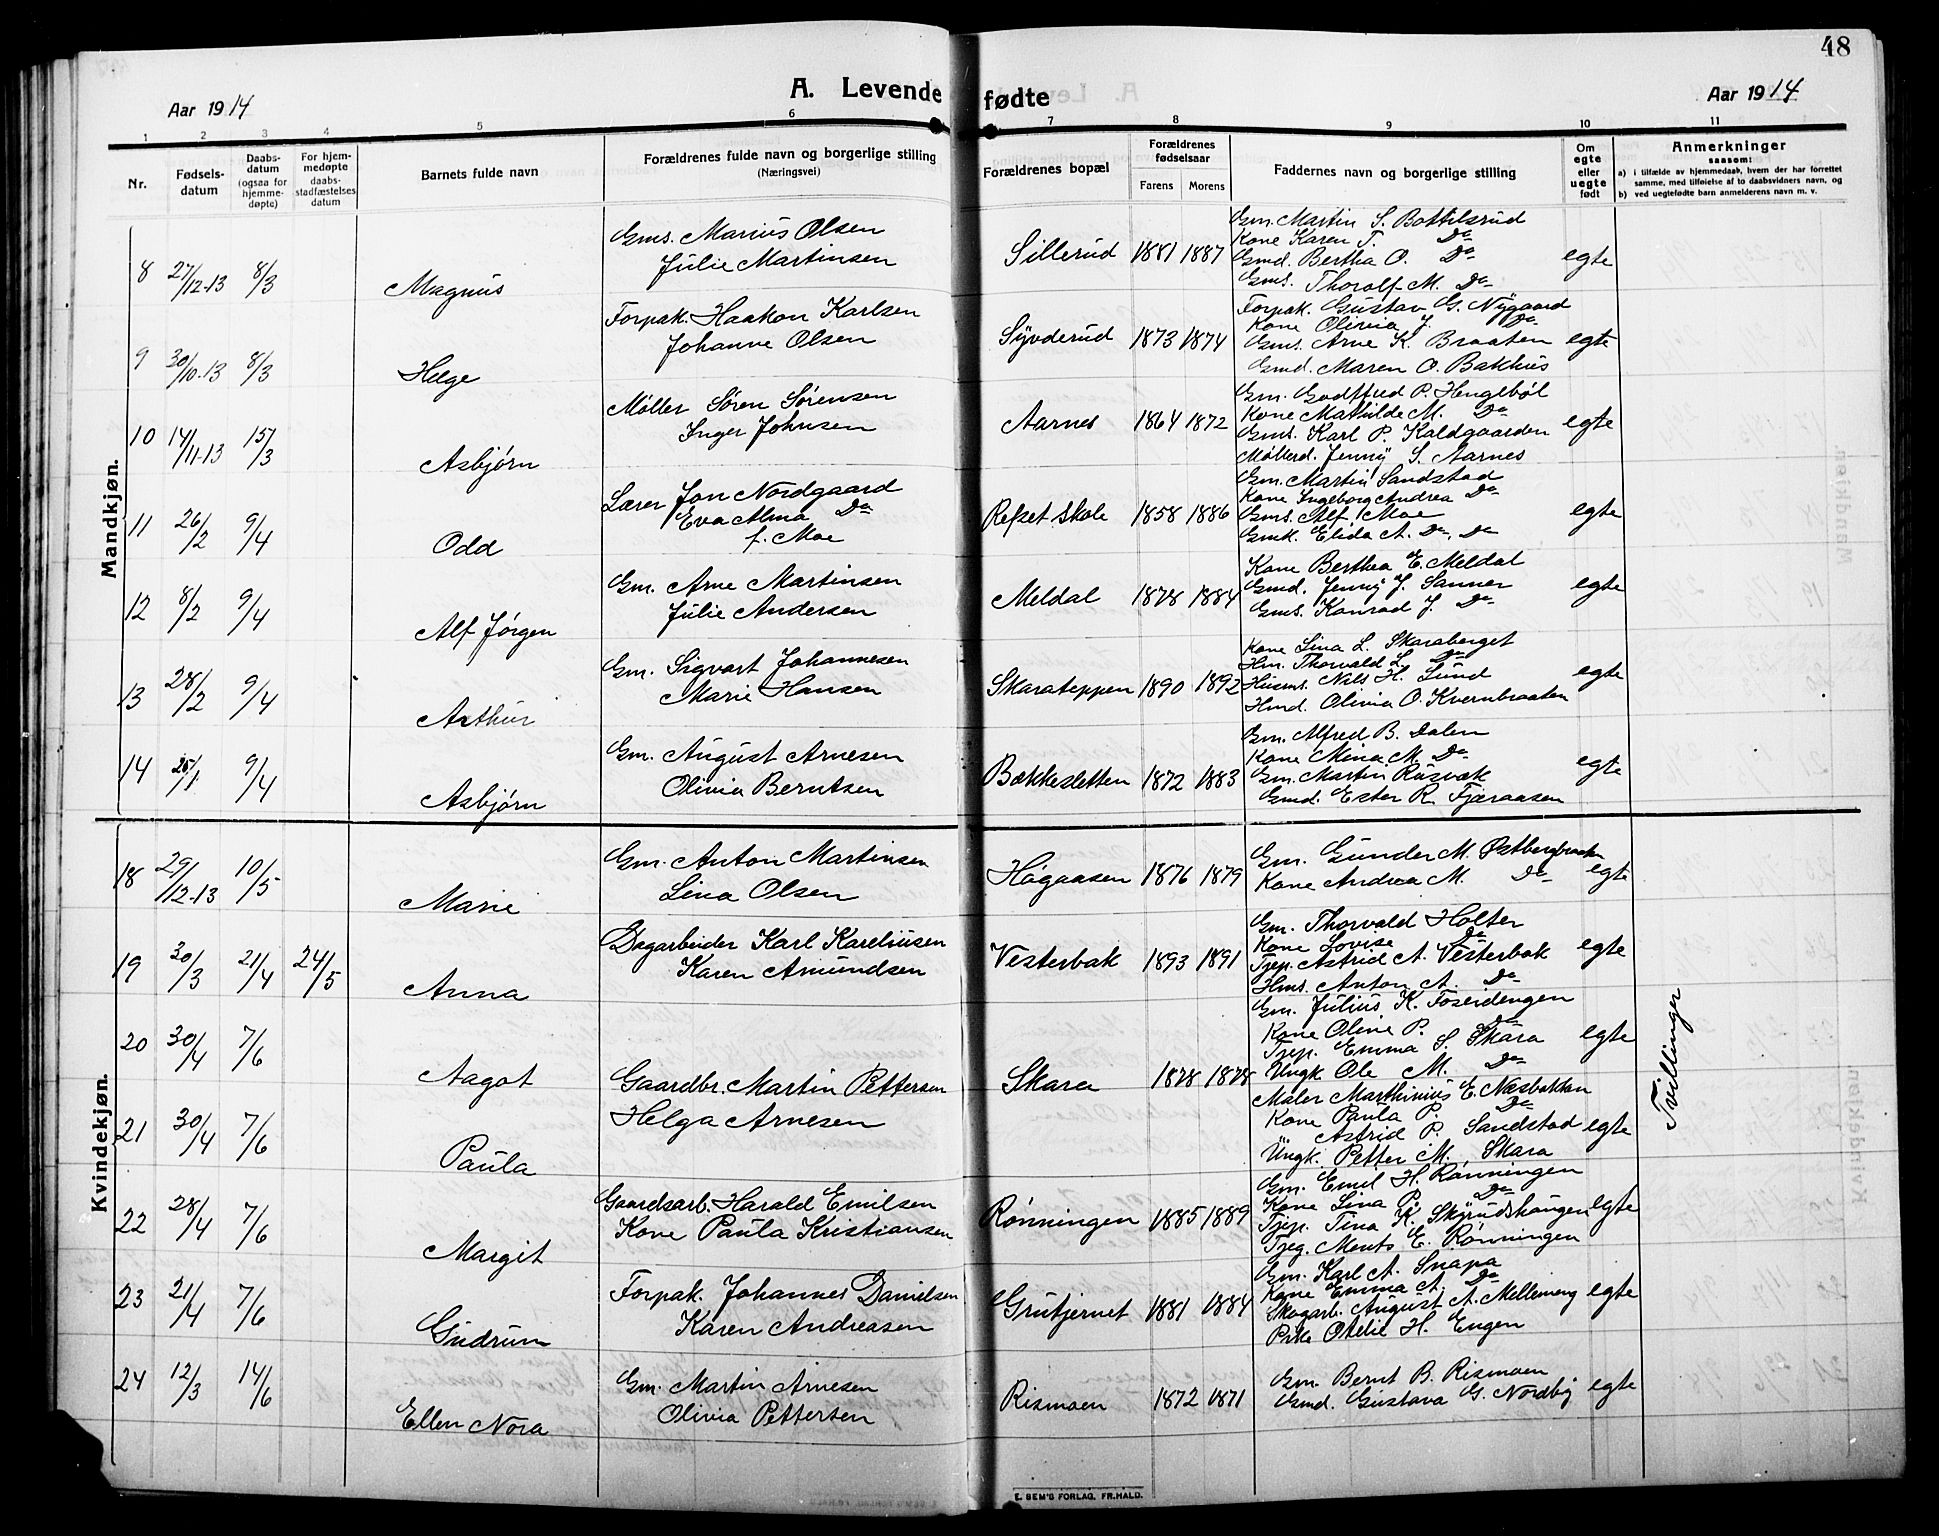 48
Aar 1914
A. Levende fødte
Aar 1914
1 2 3 4 5 6 7 8 9 10 11
Nr.
Fødsels-
datum
Daabs-
datum
(ogsaa for
hjemme-
døpte)
For hjem-
medøpte
daabs-
stadfæstelses
datum
Barnets fulde navn
Forældrenes fulde navn og borgerlige stilling
(Næringsvei)
Forældrenes bopæl
Forældrenes
fødselsaar
Farens Morens
Faddernes navn og borgerlige stilling
Om
egte
eller
uegte
født
Anmerkninger
saasom:
a) i tilfælde av hjemmedaab, hvem der har forrettet
samme, med tilføielse af to daabsvidners navn, og
b) ved uegtefødte barn anmelderens navn m. v.
Mandkjøn.
8 27/12-13 8/3 Magnus
Gms. Marius Olsen
Julie Martinsen
Sillerud 1881 1887
Gm. Martin S. Bottilsrud
Kone Karen T. Do
Gmd. Bertha O. Do
Gms. Thoralf M. Do
egte
9 30/10-13 8/3 Helge
Forpak. Haakon Karlsen
Johanne Olsen
Syvderud 1873 1874
Forpak. Gustav G. Nygaard
Kone Olivia J. Do
Gms. Arne K. Braaten
Gmd. Maren O. Bakhus
egte
10 14/11-13 15/3 Asbjørn
Møller Søren Sørensen
Inger Johnsen
Aarnes 1864 1872
Gm. Godtfred P. Hengebøl
Kone Mathilde M. Do
Gms. Karl P. Kaldgaarden
Møllerd. Jenny S. Aarnes
egte
11 26/2 9/4 Odd
Lærer Jon Nordgaard
Eva Alma Do
f. Moe
Refset skole 1858 1886
Gm. Martin Sandstad
Kone Ingeborg Andrea Do
Gms. Alf Moe
Gmk. Elida A. Do, Do
egte
12 8/2 9/4 Alf Jørgen
Gm. Arne Martinsen
Julie Andersen
Meldal 1878 1884
Kone Berthea E. Meldal
Gmd. Jenny J. Sanner
Gms. Konrad J. Do
egte
13 28/2 9/4 Arthur
Gm. Sigvart Johannesen
Marie Hansen
Skarateppen 1890 1892
Kone Lina L. Skaraberget
Hm. Thorvald L. Do
Husms. Nils H. Lund
Hmd. Olivia O. Kvernbraaten
egte
14 25/1 9/4 Asbjørn
Gm. August Arnesen
Olivia Berntsen
Bækkesletten 1872 1883
Gm. Alfred B. Dalen
Kone Mina M. Do
Gm. Martin Rusvik
Gmd. Ester R. Fjæraasen
egte
Kvindekjøn.
18 29/12-13 10/5 Marie
Gm. Anton Martinsen
Lina Olsen
Høgaasen 1876 1879
Gm. Gunder M. Østbergbraaten
Kone Andrea M. Do
egte
19 30/3 21/4 24/5 Anna
Dagarbeider Karl Kareliusen
Karen Amundsen
Vesterbak 1893 1891
Gm. Thorvald Holter
Kone Lovise Do
Tjep. Astrid A. Vesterbak
Hms. Anton A. Do
egte
20 30/4 7/6 Aagot
Gm. Julius K. Foseidengen
Kone Oline P. Do
Tjep. Emma S. Skara
Ungk Ole M. Do
egte
Gaardbr. Martin Pettersen
Helga Arnesen
Skara 1878 1878
Tvillinger
21 30/4 7/6 Paula
Maler Marthinius E. Næsbakken
Kone Paula P. Do
Astrid P. Sandstad
Ungk. Petter M. Skara
egte
22 28/4 7/6 Margit
Gaardsarb. Harald Emilsen
Kone Paula Kristiansen
Rønningen 1885 1889
Gm. Emil H. Rønningen
Kone Lina P. Do
Tjep. Tina K. Skyrudshaugen
Tjeg. Ments E. Rønningen
egte
23 21/4 7/6 Gudrun
Forpak. Johannes Danielsen
Karen Andreasen
Grutjernet 1881 1884
Gm. Karl A. Snapa
Kone Emma A. Do
Skogarb. August A. Mellemeng
Pike Otelie H. Engen
egte
24 12/3 14/6 Ellen Nora
Gm. Martin Arnesen
Olivia Pettersen
Rismoen 1872 1871
Gm. Bernt B. Rismoen
Gmd. Gustava G. Nordby
egte
E. SEM'S FORLAG, FR.HALD.